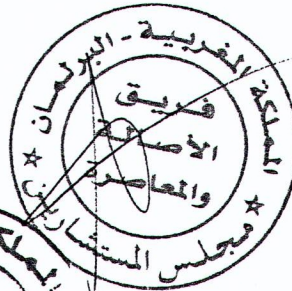 المملكة المغربية - البرلمان
فريق
الأصالة
والمعاصرة
مجلس المستشارين
المملكة